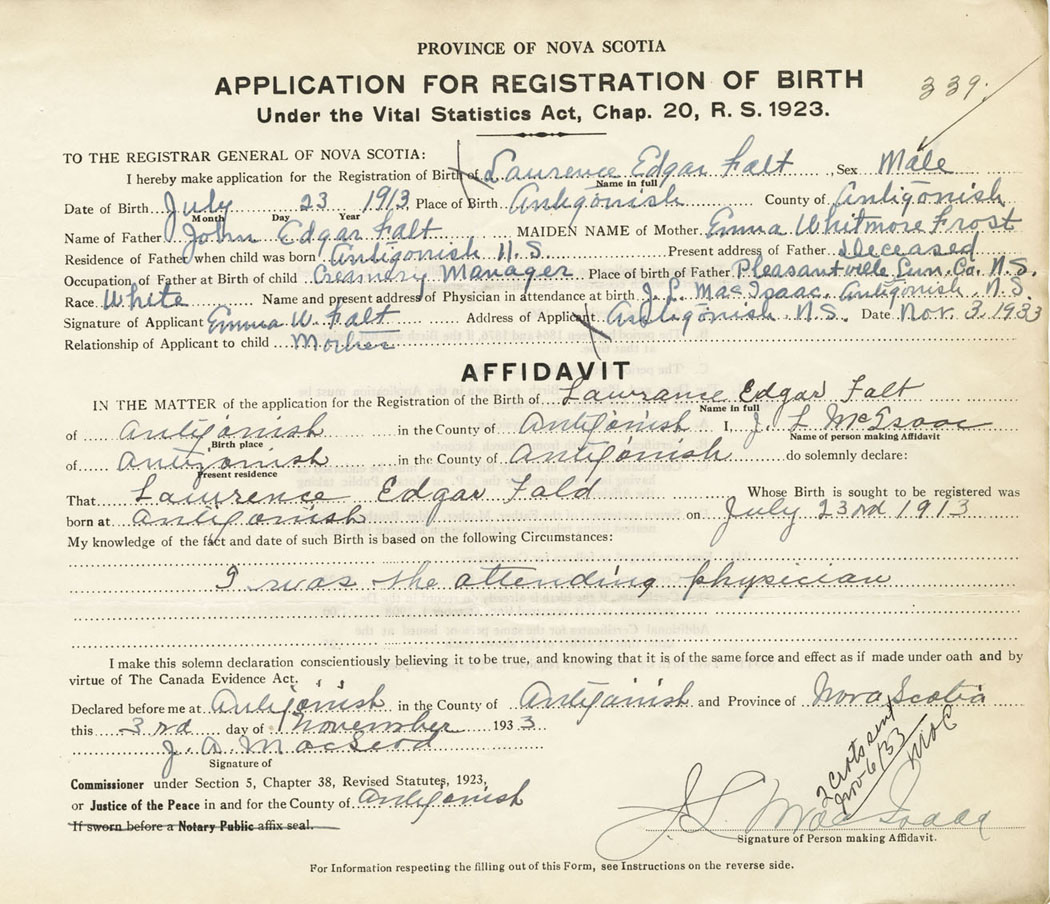 PROVINCE OF NOVA SCOTIA
APPLICATION FOR REGISTRATION OF BIRTH
339.
Under the Vital Statistics Act, Chap. 20, R. S. 1923.
TO THE REGISTRAR GENERAL OF NOVA SCOTIA:
I hereby make application for the Registration of Birth of Lawrence Edgar Falt Sex Male
Name in full
Date of Birth July 23 1913 Place of Birth Antigonish County of Antigonish
Month Day Year
Name of Father John Edgar Falt MAIDEN NAME of Mother Emma Whitmore Frost
Residence of Father when child was born Antigonish N.S. Present address of Father Deceased
Occupation of Father at Birth of child Creamery Manager Place of birth of Father Pleasantville Lun. Co. N.S.
Race White Name and present address of Physician in attendance at birth J. L. MacIsaac, Antigonish, N.S.
Signature of Applicant Emma W. Falt Address of Applicant Antigonish, N.S. Date Nov. 3, 1933
Relationship of Applicant to child Mother
AFFIDAVIT
IN THE MATTER of the application for the Registration of the Birth of Lawrance Edgar Falt
Name in full
of Antigonish in the County of Antigonish I, J. L McIsaac
Birth place Name of person making Affidavit
of Antigonish in the County of Antigonish do solemnly declare:
Present residence
That Lawrence Edgar Fald Whose Birth is sought to be registered was
born at Antigonish on July 23rd 1913
My knowledge of the fact and date of such Birth is based on the following Circumstances:
I was the attending physician
I make this solemn declaration conscientiously believing it to be true, and knowing that it is of the same force and effect as if made under oath and by
virtue of The Canada Evidence Act.
Declared before me at Antigonish in the County of Antigonish and Province of Nova Scotia
this 3rd day of November 1933
J. A. MacLeod
Signature of
Commissioner under Section 5, Chapter 38, Revised Statutes, 1923,
or Justice of the Peace in and for the County of Antigonish
If sworn before a Notary Public affix seal.
2 sent
Nov 6/33
J L MacIsaac
Signature of Person making Affidavit.
For Information respecting the filling out of this Form, see Instructions on the reverse side.